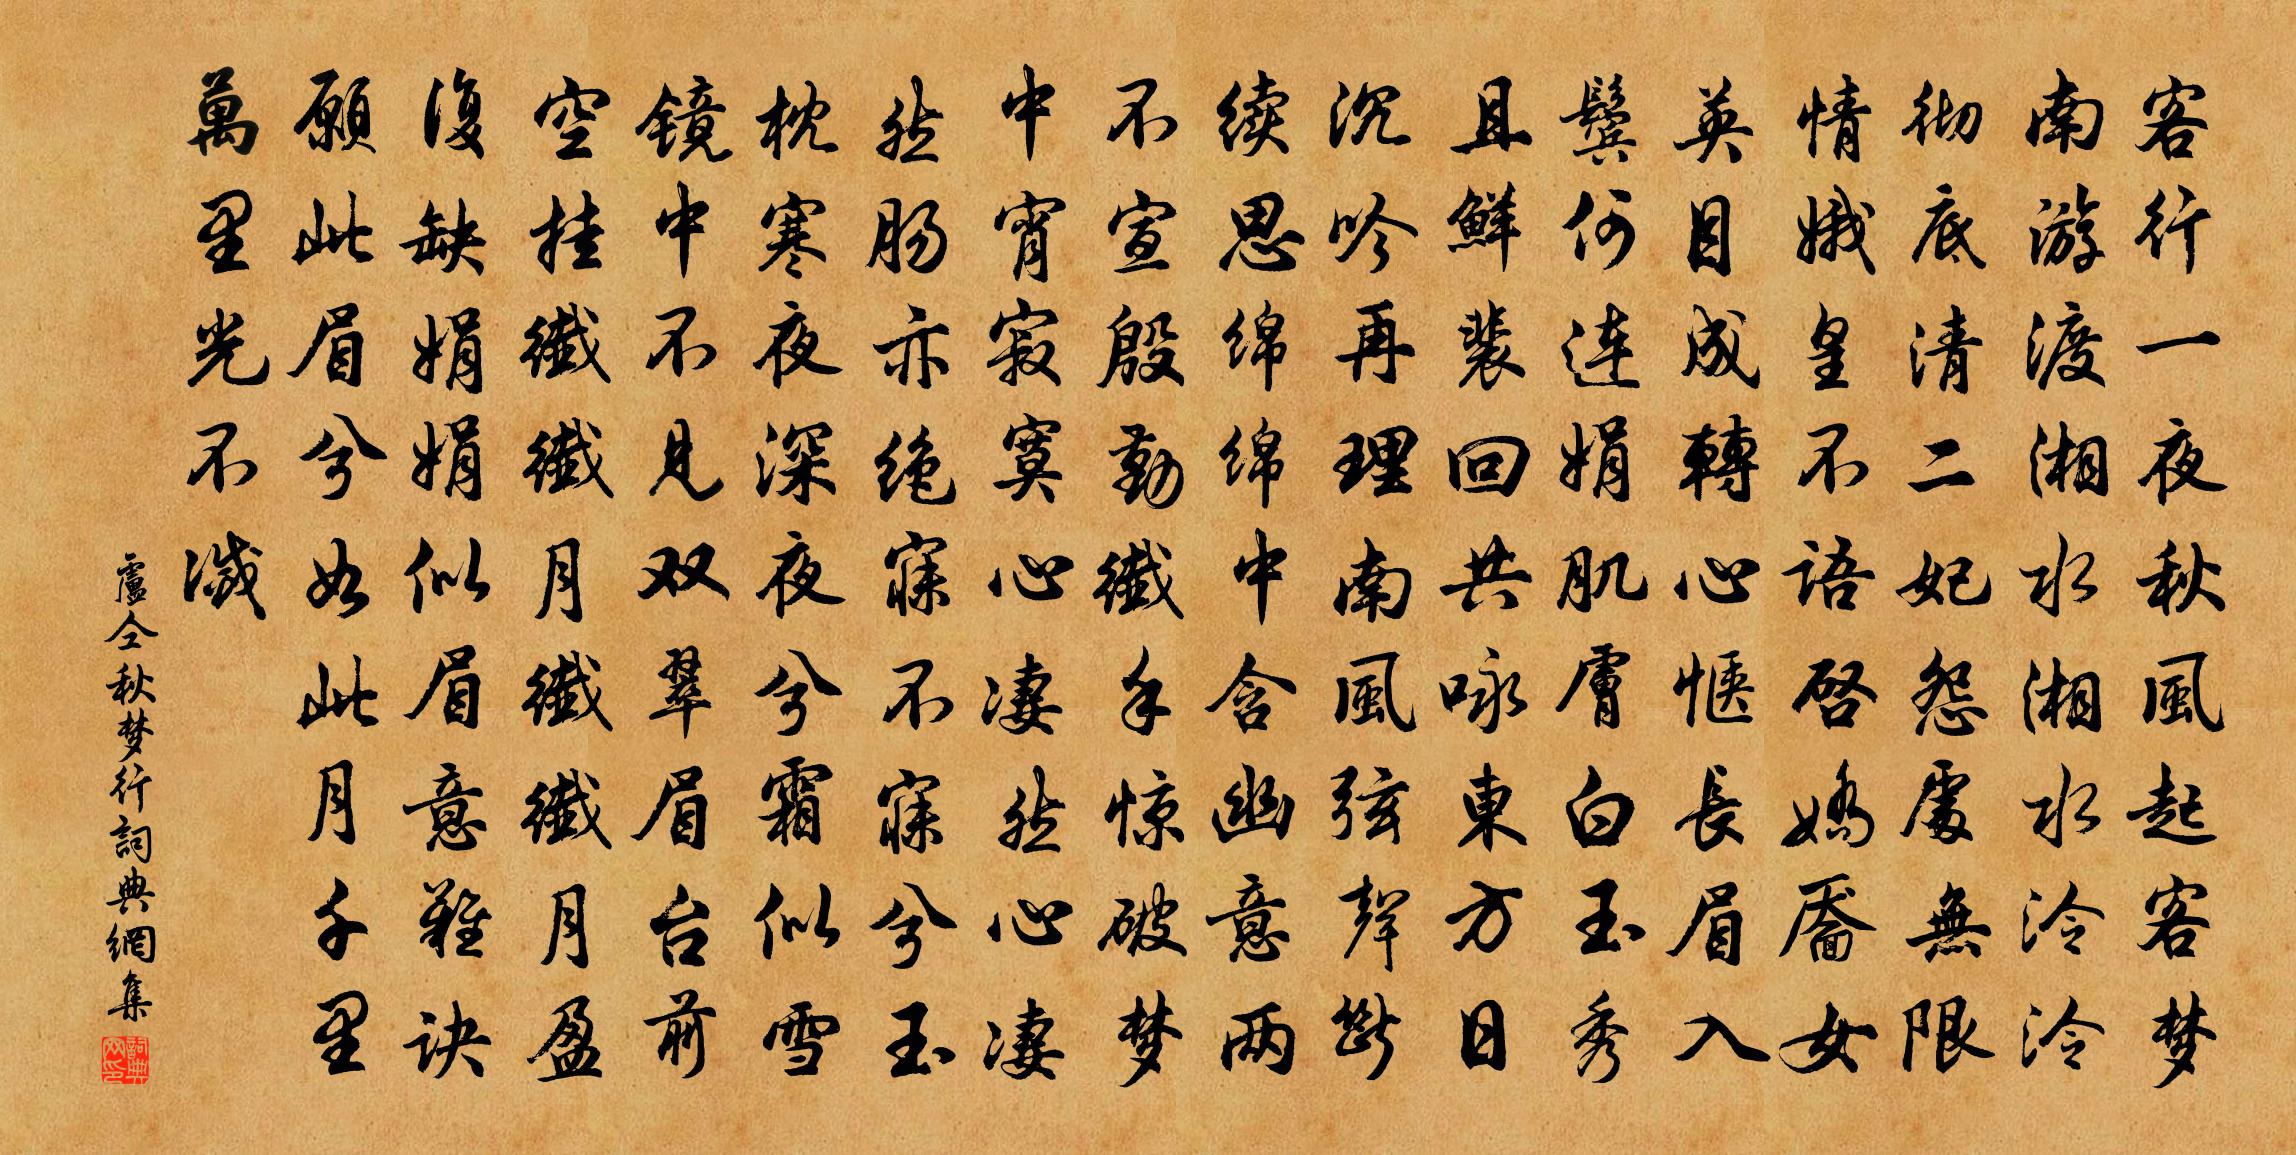 客行一夜秋風起客梦
南游渡湘水湘水泠泠
彻底清二妃怨處無限
情娥皇不語启嬌靥女
英目成轉心惬長眉入
鬓何连娟肌膚白玉秀
且鮮裴回共咏東方日
沉吟再理南風弦聲断
续思绵绵中含幽意两
不宣殷勤纖手惊破梦
中宵寂寞心凄然心凄
然肠亦绝寐不寐兮玉
枕寒夜深夜兮霜似雪
镜中不見双翠眉台前
空挂纖纖月纖纖月盈
復缺娟娟似眉意難诀
願此眉兮如此月千里
萬里光不滅
盧仝秋梦行詞典網集
詞典网印